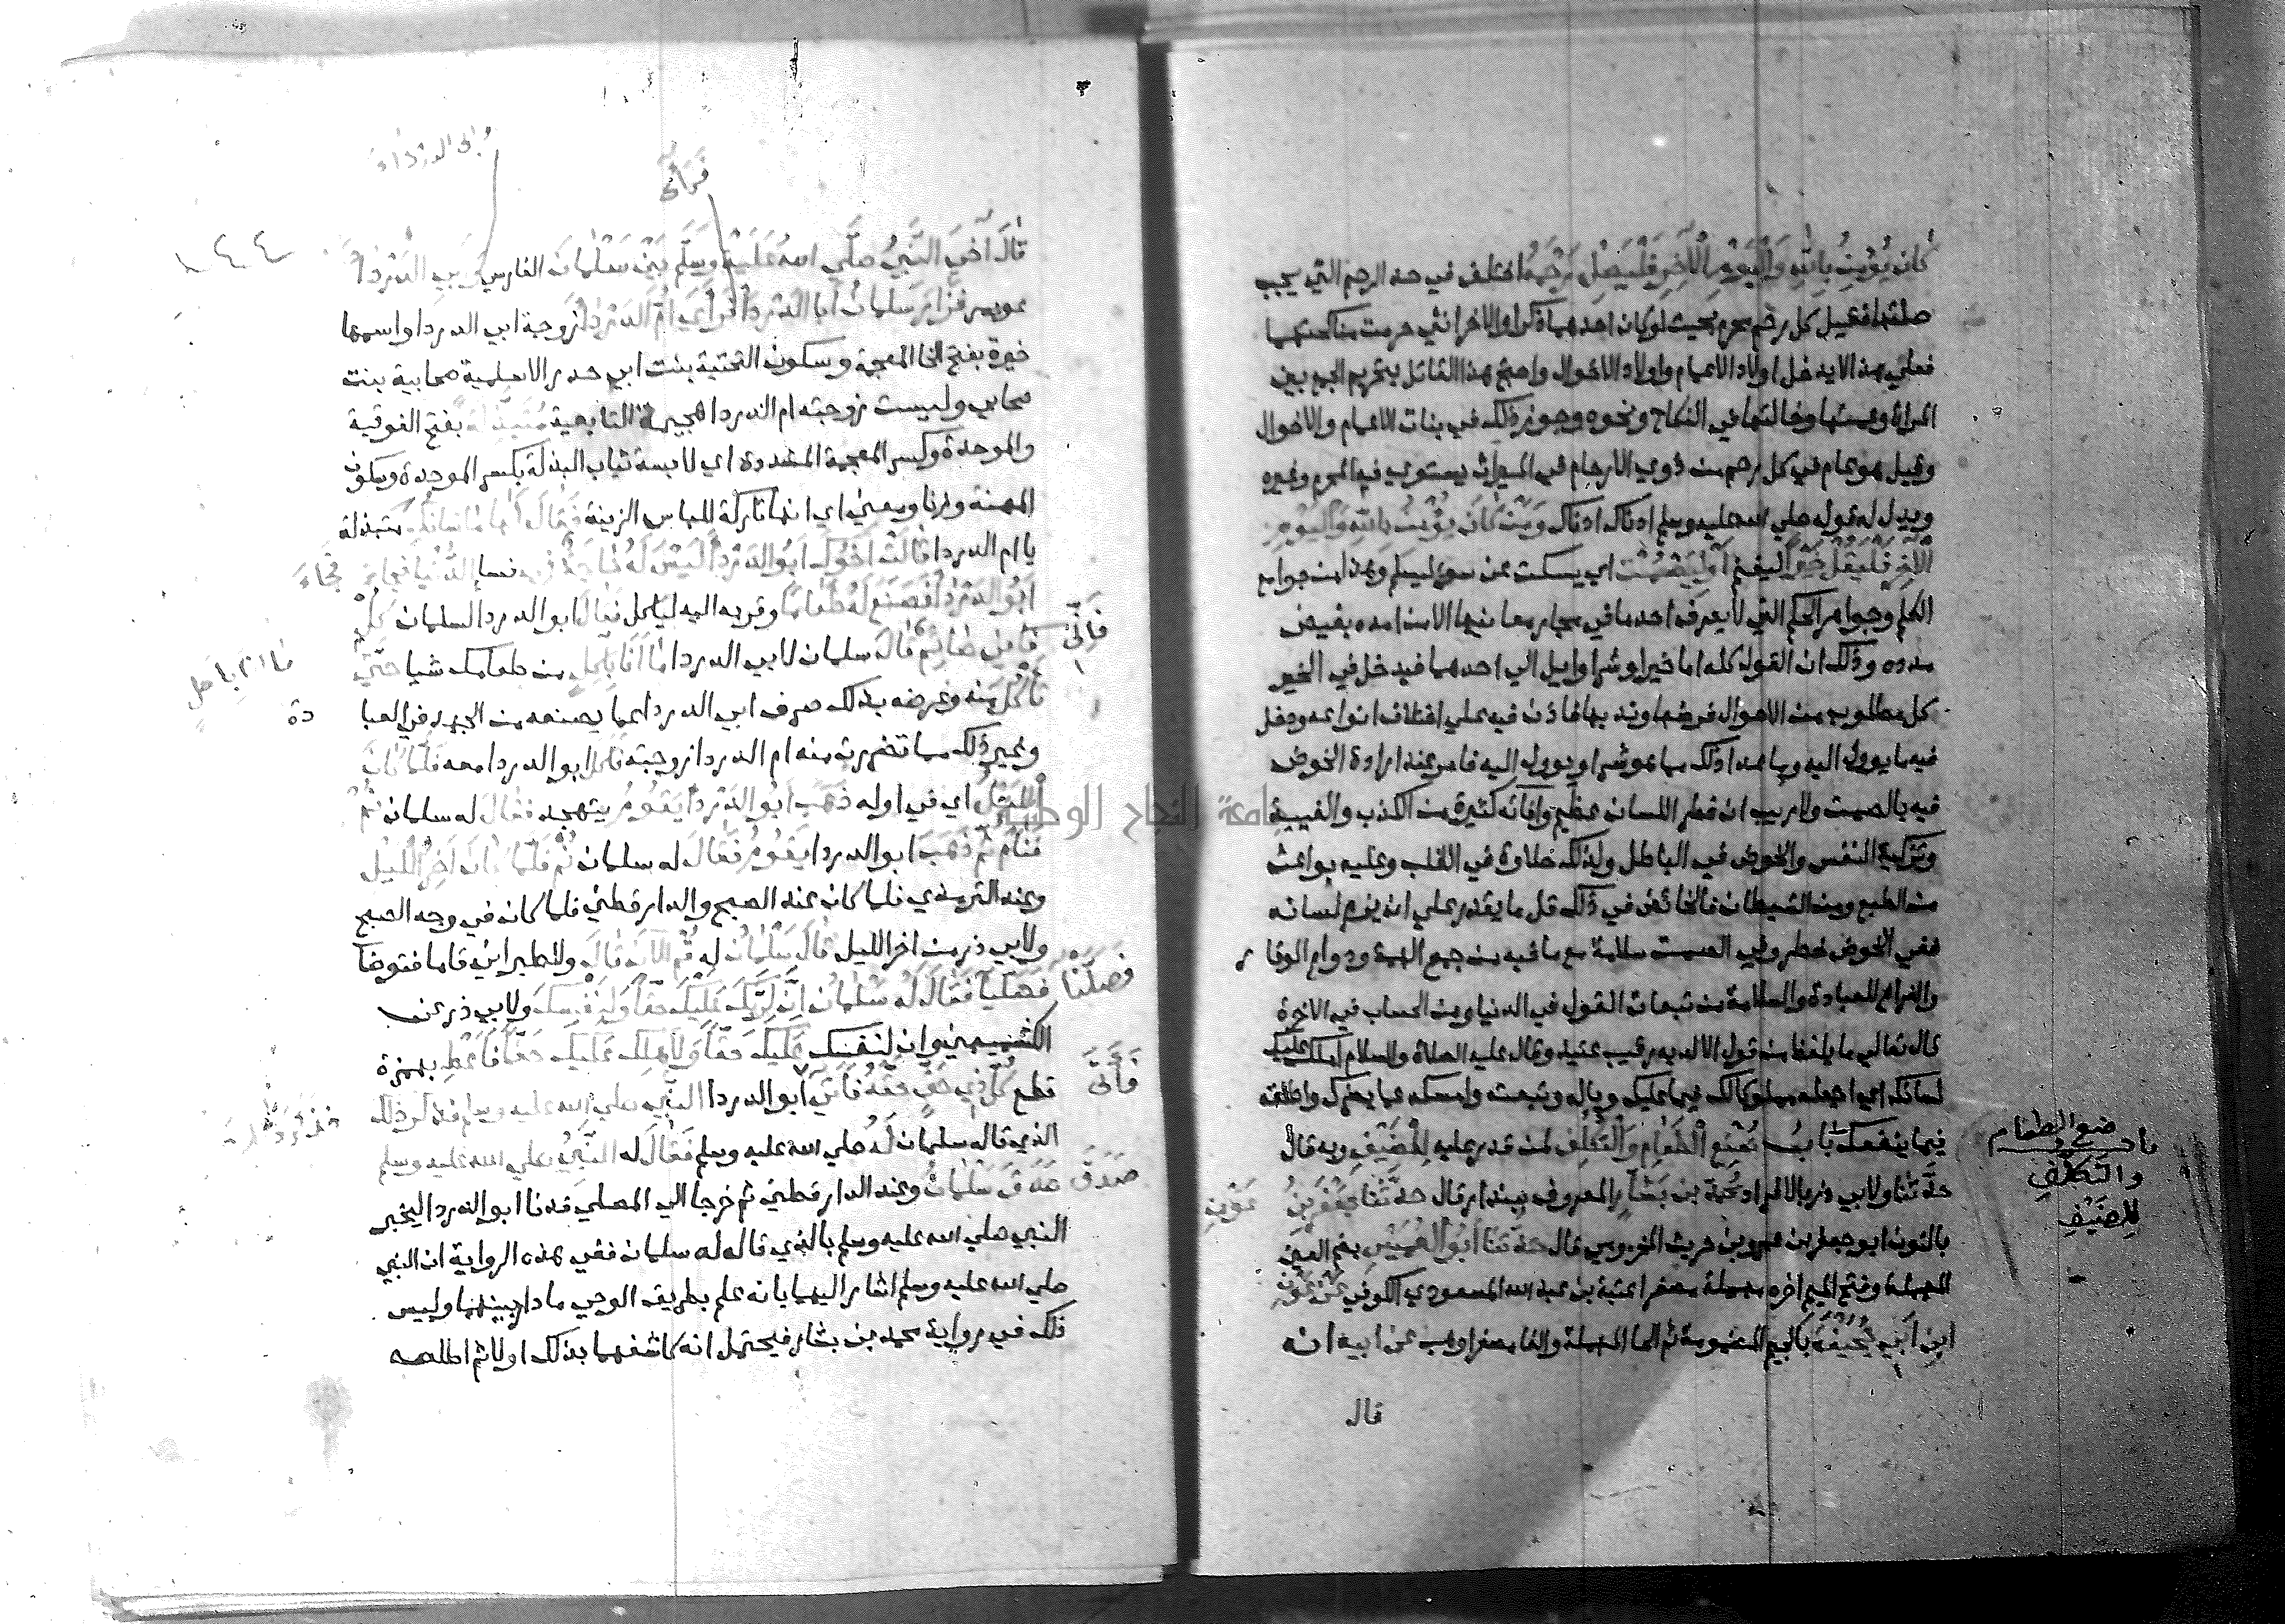 كان يؤمن بالله واليوم الآخر فليصل رحمه اختلف في حد الرحم التي يجب
صلتها فقيل كل رحم محرم بحيث لو كان احدهما ذكرا والاخر انثي حرمت مناكحتهما
فعلي هذا لا يدخل اولاد الاعمام واولاد الاخوال واحتج هذا القائل بتحريم الجمع بين
المراة وعمتها وخالتها في النكاح ونحوه وجوز ذلك في بنات الاعمام والاخوال
وقيل هو عام في كل رحم من ذوي الارحام في الميراث يستوي فيه المحرم وغيره
ويدل له قوله صلي الله عليه وسلم ادناك ادناك ومن كان يؤمن بالله واليوم
الآخر فليقل خيرا ليغنم أو ليصمت اي يسكت عن سوء ليسلم وهذا من جوامع
الكلم وجواهر الحكم التي لا يعرف احد ما في بحار معانيها الا من امده بفيض
مدده وذلك ان القول كله اما خير او شر او ايل الي احدهما فيدخل في الخير
كل مطلوب من الاقوال فرضها وندبها فاذن فيه علي اختلاف انواعه ودخل
فيه ما يوول اليه وما عدا ذلك مما هو شر او يوول اليه فامر عند ارادة الخوض
فيه بالصمت ولا ريب ان خطر اللسان عظيم وافاته كثيرة من الكذب والغيبة
وتزكية النفس والخوض في الباطل ولذلك حلاوة في القلب وعليه بواعث
من الطبع ومن الشيطان فالخائض في ذلك قل ما يقدر علي ان يزم لسانه
ففي الخوض خطر وفي الصمت سلامة مع ما فيه من جمع الهمة ودوام الوقار
والفراغ للعبادة والسلامة من تبعات القول في الدنيا ومن الحساب في الاخرة
قال تعالي ما يلفظ من قول الا لديه رقيب عتيد وقال عليه الصلاة والسلام املك عليك
لسانك اي اجعله مملوكا لك فيما عليك وباله وتبعته وامسكه عما يضرك واطلقه
فيما ينفعك باب صنع الطعام والتكلف لمن قدر عليه للضيف وبه قال
باب صنع الطعام
والتكلف
للضيف
حدثنا ولابي ذر بالافراد محمد بن بشار المعروف ببندار قال حدثنا جعفر بن عون
بالنون ابو جعفر بن عمرو بن حريث المخزومي قال حدثنا أبو العميس بضم العين
المهملة وفتح الميم اخره مهملة مصغرا عتبة بن عبد الله المسعودي الكوفي عن عون
ابن أبي جحيفة بالجيم المضمومة ثم الحا المهملة والفا مصغرا وهب عن ابيه انه
قال
أبي الدرداء
فرأى
قال آخى النبي صلي الله عليه وسلم بين سلمان الفارسي وبين أبي الدرداء
عويمر فزار سلمان أبا الدرداء فرأى أم الدرداء زوجة ابي الدردا واسمها
خيرة بفتح الخا المعجمة وسكون التحتية بنت ابي حدرد الاسلمية صحابية بنت
صحابي وليست زوجته ام الدردا هجيمة التابعية متبذلة بفتح الفوقية
والموحدة وكسر المعجمة المشددة اي لابسة ثياب البذلة بكسر الموحدة وسكون
المهنة وزنا ومعني اي انها تاركة للباس الزينة فقال لها ما شانك متبذلة
يا ام الدردا قالت أخوك أبو الدرداء ليس له حاجة في نسا الدنيا فجاء
أبو الدرداء فصنع له طعاما وقربه اليه لياكل فقال ابو الدردا لسلمان كل
فإني صائم قال سلمان لابي الدردا ما أنا بآكل من طعامك شيا حتى
ما انا باكل
تأكل منه وغرضه بذلك صرف ابي الدردا عما يصنعه من الجهد في العبادة
وغير ذلك مما تضررت منه ام الدردا زوجته فاكل ابو الدردا معه فلما كان
الليل اي في اوله ذهب أبو الدرداء يقوم يتهجد فقال له سلمان نم
فنام ثم ذهب ابو الدردا يقوم فقال له سلمان نم فلما كان آخر الليل
وعند الترمذي فلما كان عند الصبح والدارقطني فلما كان في وجه الصبح
ولابي ذر من اخر الليل قال سلمان له قم الآن قال ولالطبراني قاما فتوضآ
فصلينا فصليا فقال له سلمان إن لربك عليك حقا ولنفسك ولابي ذر عن
الكشميهني وان لنفسك عليك حقا ولاهلك عليك حقا فأعط بهمزة
قطع كل ذي حق حقه فأتى أبو الدردا النبي صلي الله عليه وسلم فذكر ذلك
الذي قاله سلمان له صلي الله عليه وسلم فقال له النبي صلي الله عليه وسلم
صدق سلمان وعند الدارقطني ثم خرجا الي المصلي فدنا ابو الدردا ليخبر
النبي صلي الله عليه وسلم بالذي قاله له سلمان ففي هذه الرواية ان النبي
صلي الله عليه وسلم اشار اليهما بانه علم بطريق الوحي ما دار بينهما وليس
ذلك في رواية محمد بن بشار فيحتمل انه كاشفهما بذلك اولا ثم اطلعه
جامعة النجاح الوطنية